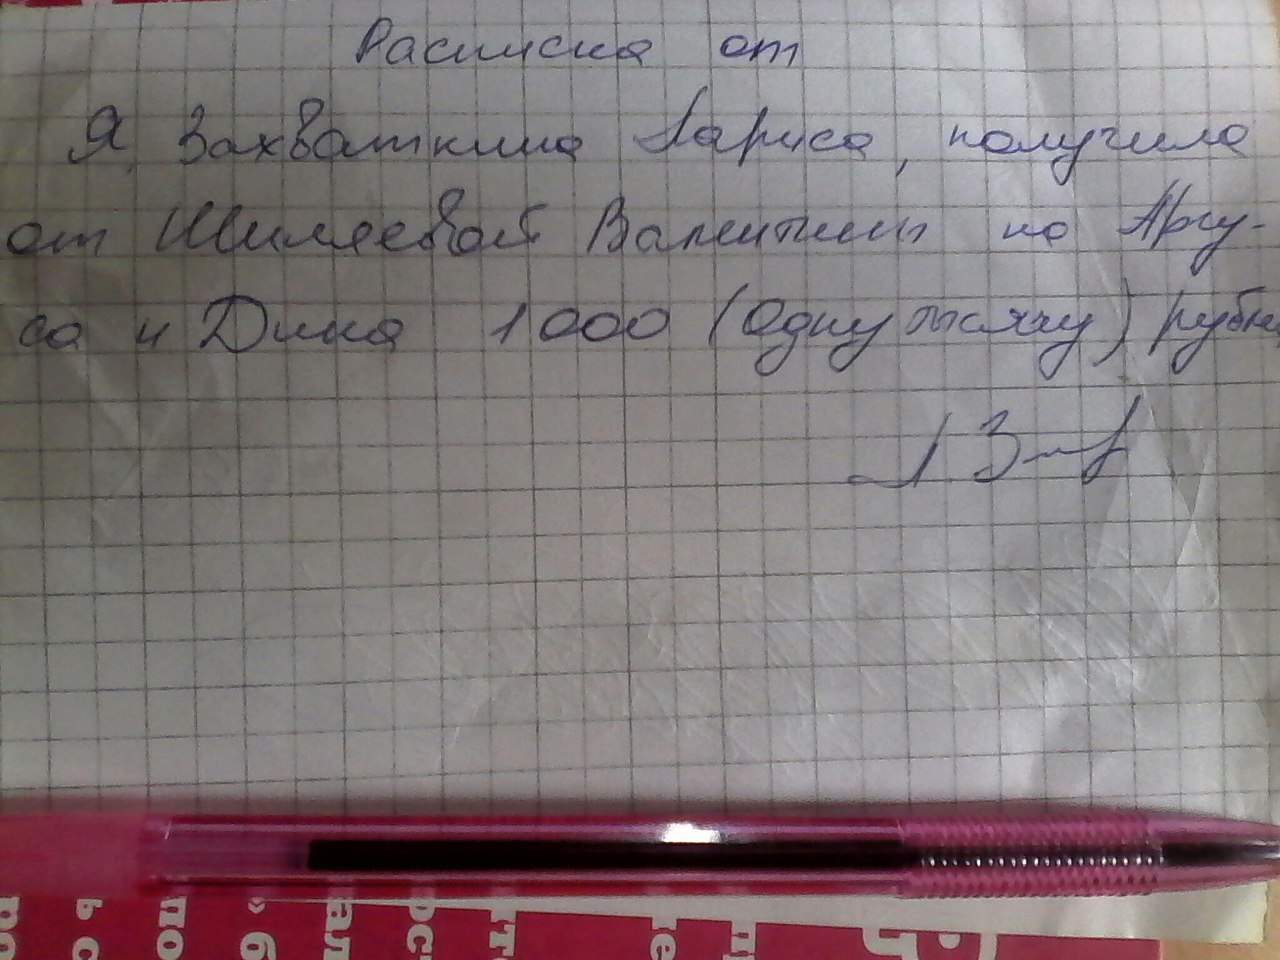 Расписка от
Я, Захваткина Лариса, получила
от Шиляевой Валентины на Аргу-
са и Дика 1000 (Одну тысячу) рубле